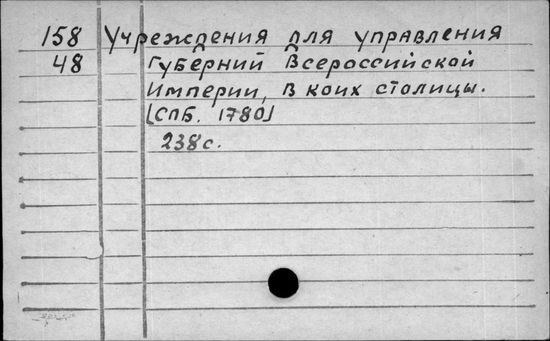 158 Учреждения для управления
48 Губерний Всероссийской
Империи, в коих столицы.
[СПБ. 1780]
238с.